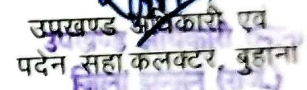 उपखण्ड अधिकारी एव
पदेन सहा.कलक्टर, बुहाना